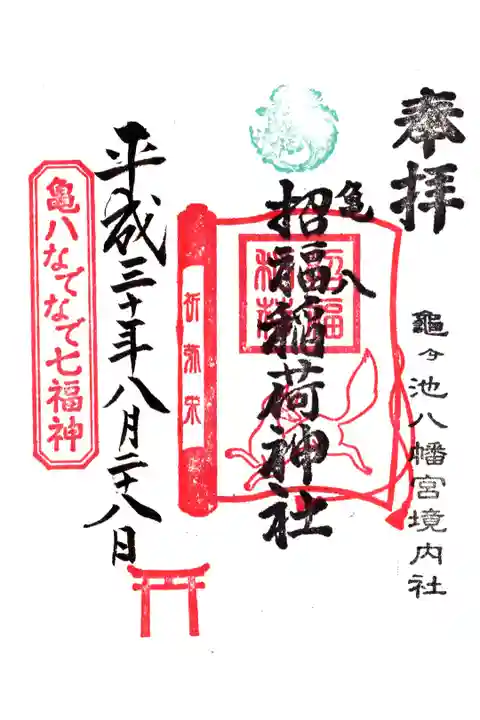 奉拝
龜ヶ池八幡宮境内社
亀八
招福稲荷神社
招福
稲荷
祈弥栄
平成三十年八月二十八日
亀八なでなで七福神